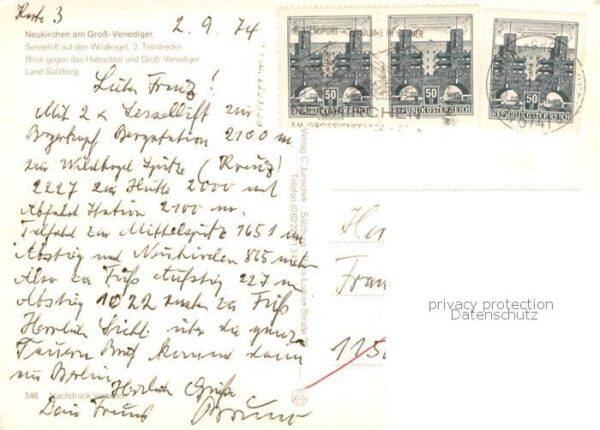 Karte 3
2.9.74
Neukirchen am Groß-Venediger.
Sessellift auf den Wildkogel, 2. Teilstrecke.
Blick gegen das Habachtal und Groß-Venediger.
Land Salzburg
Lieber Franz!
Mit 2 x Sessellift zur
Bergstation 2100 m
zur Wildkogel Spitze (Kreuz)
2227 zur Hütte 2000 mit
Abfahrt Station 2100 m.
Talfahrt zur Mittel 1651 m
Abstieg nach Neukirchen 865 meter
Also zu Fuß Aufstieg 227 m
Abstieg 1022 meter zu Fuß
Herrliche Sicht über die ganze
Tauern Brief kommt dann
aus Berlin
Herzliche Grüße
Dein Freund
Bruno
540 Nachdruck verboten
Verlag C. Jurischek - Salzburg
Telefon
50
REPUBLIK ÖSTERREICH
50
REPUBLIK ÖSTERREICH
50
REPUBLIK ÖSTERREICH
5741
Her
Fran
115
privacy protection
Datenschutz